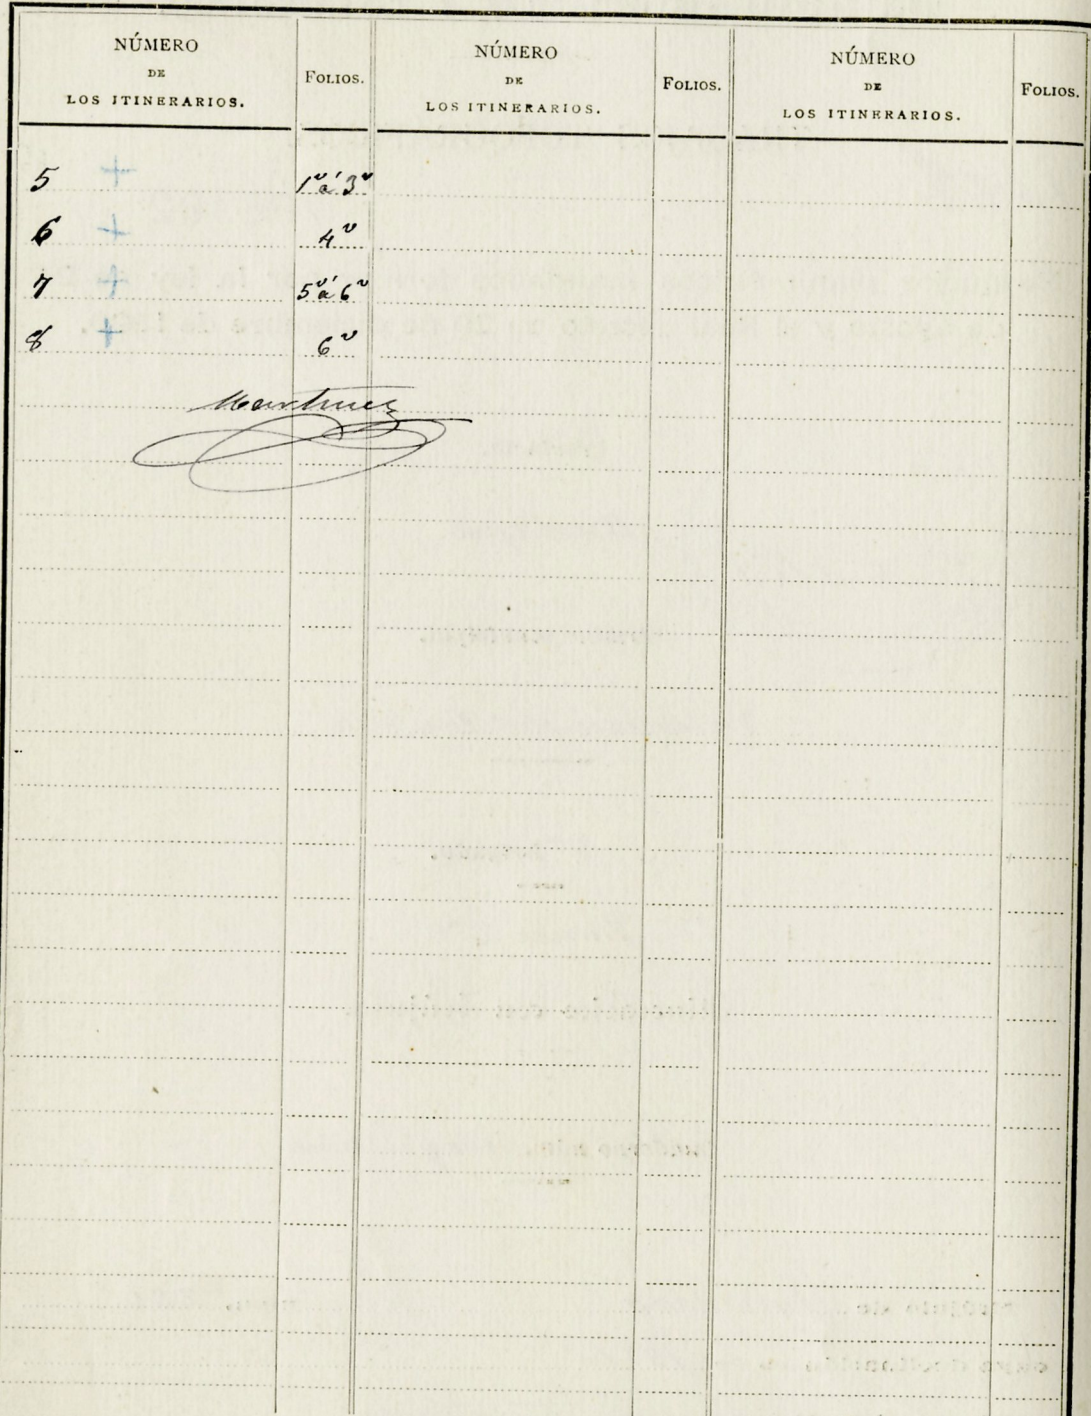 NÚMERO
DE
LOS ITINERARIOS.
FOLIOS.
NÚMERO
DE
LOS ITINERARIOS.
FOLIOS.
NÚMERO
DE
LOS ITINERARIOS.
FOLIOS.
5 + 1ᵛ á 3ᵛ
6 + 4ᵛ
7 + 5ᵛ á 6ᵛ
8 + 6ᵛ
Martinez